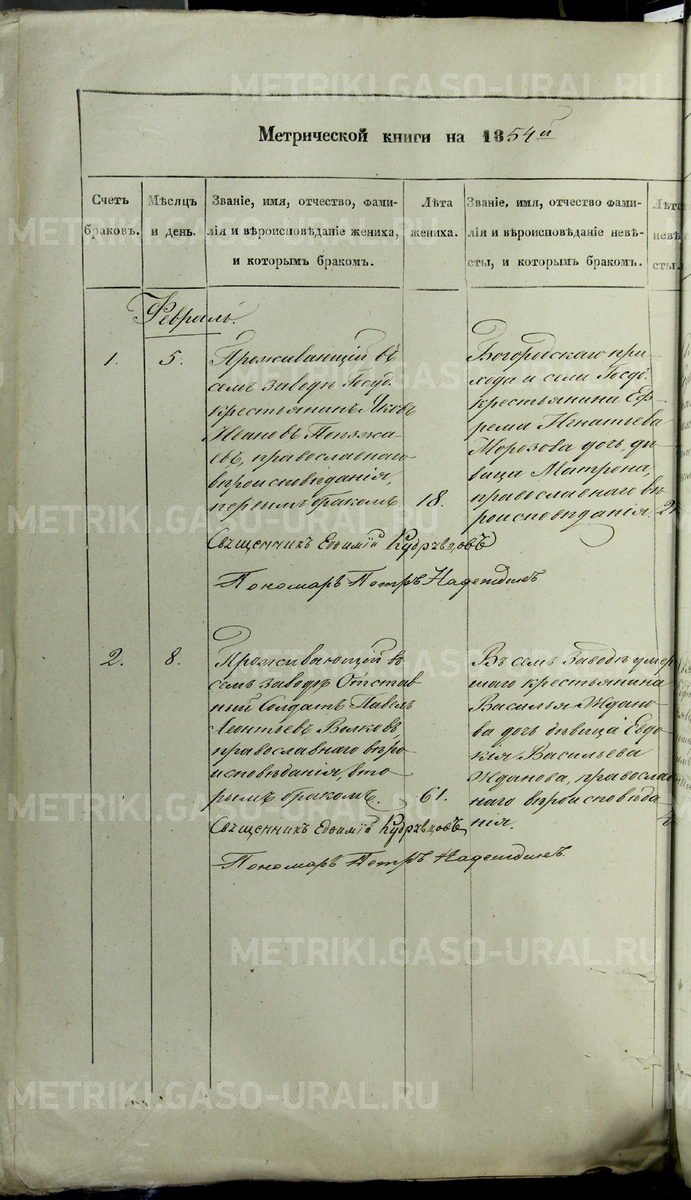 METRIKI.GASO-URAL.RU
Метрической книги на 1854й
Счетъ браковъ.
Мѣсяцъ и день.
Званіе, имя, отчество, фами-
лія и вѣроисповѣданіе жениха,
и которымъ бракомъ.
Лѣта жениха.
Званіе, имя, отчество фами-
лія и вѣроисповѣданіе невѣ-
сты, и которымъ бракомъ.
Лѣта невѣ сты.
Февраль.
1.
5.
Проживающій въ
семъ заводѣ Госуд:
крестьянинъ Яковъ
Ивановъ
православнаго
вѣроисповѣданія,
первымъ бракомъ
18.
Богородскаго при-
хода и села Госуд:
крестьянина Еф-
рема Игнатьева
Морозова дочь дѣ-
вица Матрона,
православнаго вѣ-
роисповѣданія.
Священникъ Евѳимій Кудрявцовъ
Пономарь Петръ Надеждинъ
2.
8.
Проживающій въ
семъ заводѣ Отстав-
ный Солдатъ Павелъ
Леонтьевъ Волковъ
православнаго вѣро-
исповѣданія, вто-
рымъ бракомъ.
61.
Въ семъ Заводѣ умер-
шаго крестьянина
Василья Ждано-
ва дочь дѣвица Евдо-
кія Васильева
Жданова, православ-
наго вѣроисповѣда-
нія.
Священникъ Евѳимій Кудрявцовъ
Пономарь Петръ Надеждинъ